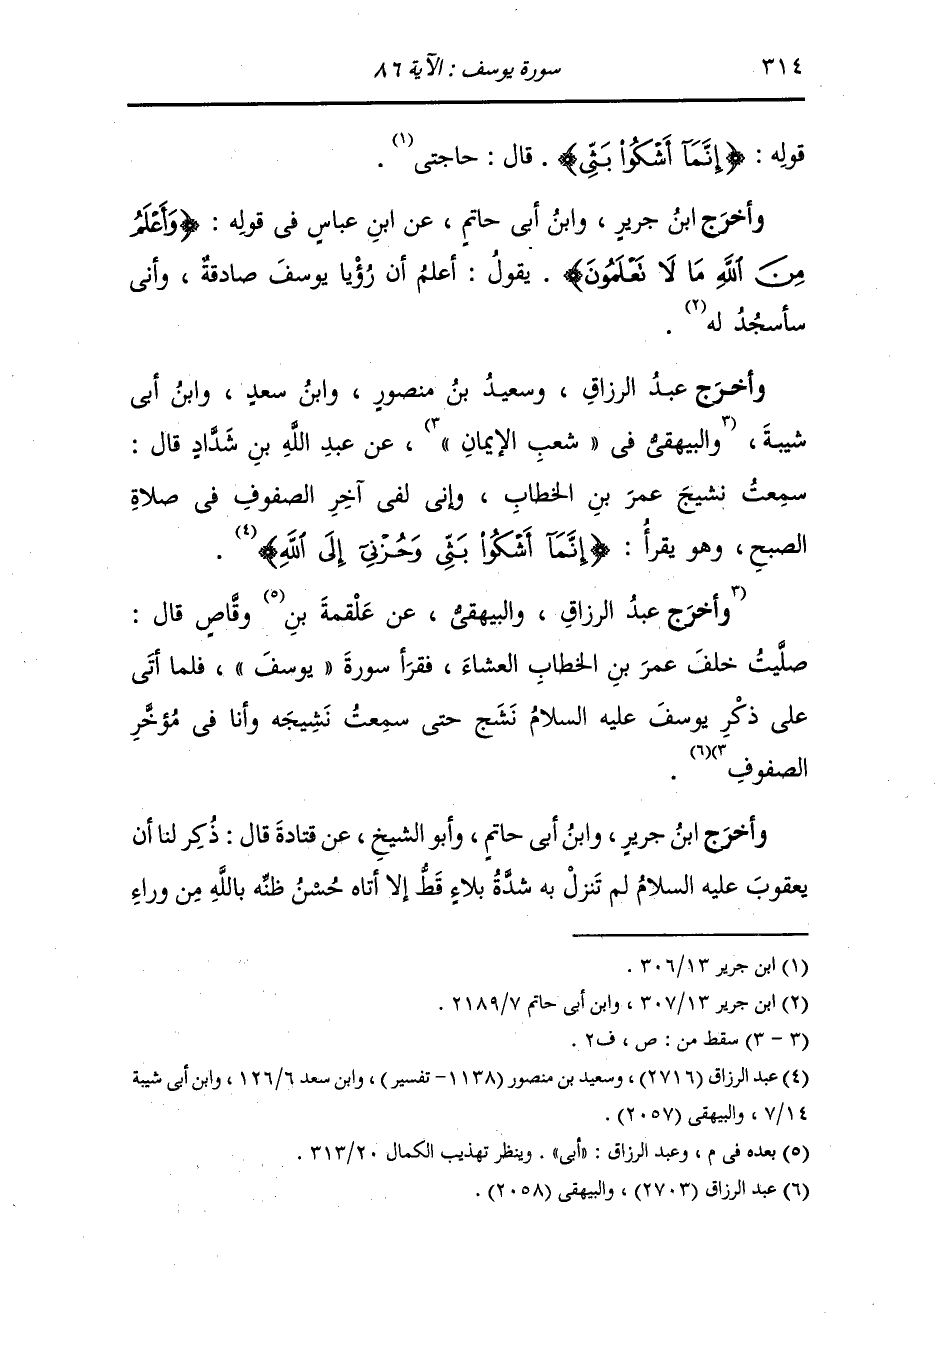 ٣١٤ سورة يوسف : الآية ٨٦
قولِه : ﴿إِنَّمَآ أَشْكُوا۟ بَثِّى﴾ . قال : حاجتى(١) .
وأخرَج ابنُ جريرٍ ، وابنُ أبى حاتمٍ ، عن ابنِ عباسٍ فى قولِه : ﴿وَأَعْلَمُ
مِنَ ٱللَّهِ مَا لَا تَعْلَمُونَ﴾ . يقولُ : أعلمُ أن رُؤْيا يوسفَ صادقةٌ ، وأنى
سأسجُدُ له(٢) .
وأخرَج عبدُ الرزاقِ ، وسعيدُ بنُ منصورٍ ، وابنُ سعدٍ ، وابنُ أبى
شيبةَ ، (٣والبيهقىُّ فى « شعبِ الإيمانِ »٣) ، عن عبدِ اللَّهِ بنِ شَدَّادٍ قال :
سمِعتُ نشيجَ عمرَ بنِ الخطابِ ، وإنى لفى آخِرِ الصفوفِ فى صلاةِ
الصبحِ ، وهو يقرأُ : ﴿إِنَّمَآ أَشْكُوا۟ بَثِّى وَحُزْنِىٓ إِلَى ٱللَّهِ﴾(٤) .
(٣وأخرَج عبدُ الرزاقِ ، والبيهقىُّ ، عن عَلْقمةَ بنِ(٥) وقَّاصٍ قال :
صلَّيتُ خلفَ عمرَ بنِ الخطابِ العشاءَ ، فقرَأ سورةَ « يوسفَ » ، فلما أتَى
على ذكْرِ يوسفَ عليه السلامُ نَشَج حتى سمِعتُ نَشِيجَه وأنا فى مُؤخَّرِ
الصفوفِ٣)(٦) .
وأخرَج ابنُ جريرٍ ، وابنُ أبى حاتمٍ ، وأبو الشيخِ ، عن قتادةَ قال : ذُكِر لنا أن
يعقوبَ عليه السلامُ لم تَنزلْ به شدَّةُ بلاءٍ قَطُّ إلا أتاه حُسْنُ ظنِّه باللَّهِ مِن وراءِ
(١) ابن جرير ٣٠٦/١٣ .
(٢) ابن جرير ٣٠٧/١٣ ، وابن أبى حاتم ٢١٨٩/٧ .
(٣ - ٣) سقط من : ص ، ف٢ .
(٤) عبد الرزاق (٢٧١٦) ، وسعيد بن منصور (١١٣٨- تفسير) ، وابن سعد ١٢٦/٦ ، وابن أبى شيبة
٧/١٤ ، والبيهقى (٢٠٥٧) .
(٥) بعده فى م ، وعبد الرزاق : «أبى» . وينظر تهذيب الكمال ٣١٣/٢٠ .
(٦) عبد الرزاق (٢٧٠٣) ، والبيهقى (٢٠٥٨) .